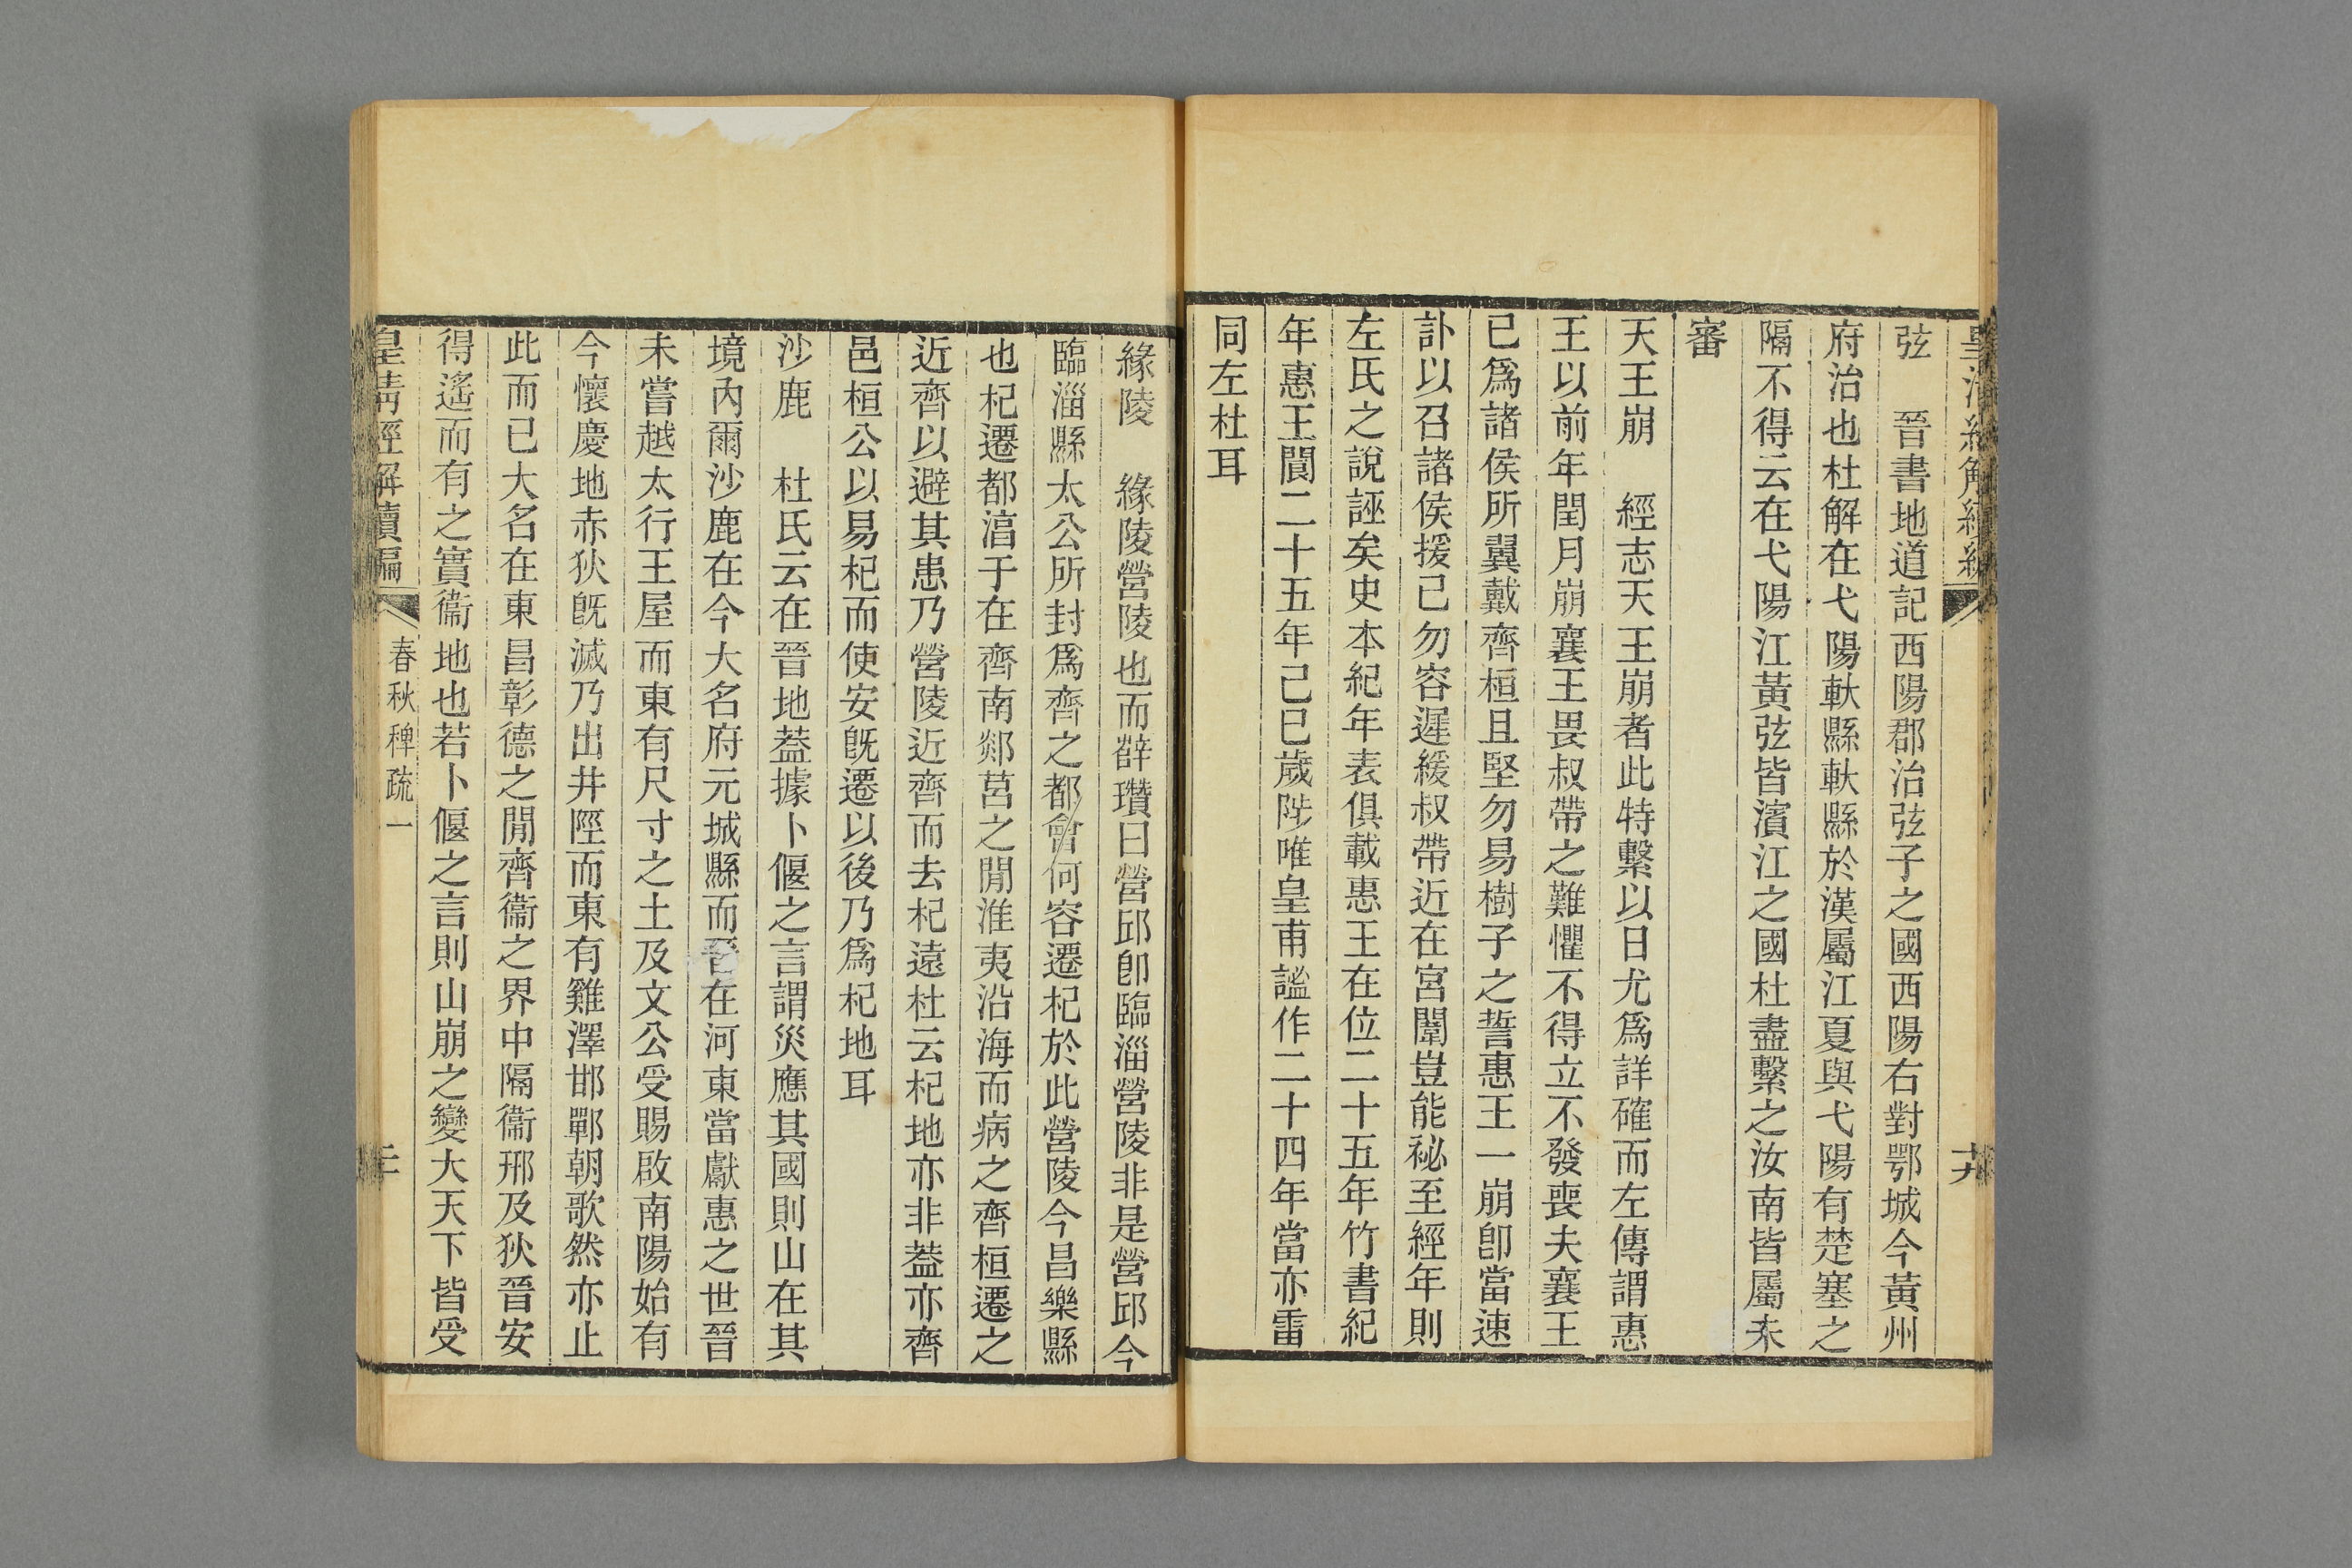 弦　晉書地道記西陽郡治弦子之國西陽右對鄂城今黃州
府治也杜解在弋陽軑縣軑縣於漢屬江夏與弋陽有楚塞之
隔不得云在弋陽江黃弦皆濱江之國杜盡繫之汝南皆屬未
審
天王崩　經志天王崩者此特繫以日尤爲詳確而左傳謂惠
王以前年閏月崩襄王畏叔帶之難懼不得立不發喪夫襄王
已爲諸侯所翼戴齊桓且堅勿易樹子之誓惠王一崩卽當速
訃以召諸侯援己勿容遲緩叔帶近在宮闈豈能祕至經年則
左氏之說誣矣史本紀年表俱載惠王在位二十五年竹書紀
年惠王閬二十五年己巳歲陟唯皇甫謐作二十四年當亦雷
同左杜耳
緣陵　緣陵營陵也而薛瓚曰營邱卽臨淄營陵非是營邱今
臨淄縣太公所封爲齊之都會何容遷杞於此營陵今昌樂縣
也杞遷都湻于在齊南郯莒之閒淮夷沿海而病之齊桓遷之
近齊以避其患乃營陵近齊而去杞遠杜云杞地亦非葢亦齊
邑桓公以易杞而使安旣遷以後乃爲杞地耳
沙鹿　杜氏云在晉地葢據卜偃之言謂災應其國則山在其
境內爾沙鹿在今大名府元城縣而晉在河東當獻惠之世晉
未嘗越太行王屋而東有尺寸之土及文公受賜啟南陽始有
今懷慶地赤狄旣滅乃出井陘而東有雞澤邯鄲朝歌然亦止
此而已大名在東昌彰德之閒齊衞之界中隔衞邢及狄晉安
得遙而有之實衞地也若卜偃之言則山崩之變大天下皆受
皇清經解續編
春秋稗疏一